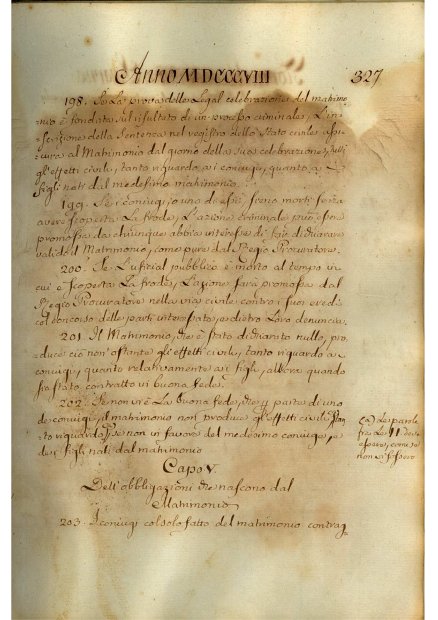 Anno MDCCCVIII 327
198. Se La prova della Legal celebrazione del matrimo
nio è fondata sul risultato di un processo criminale, L'in
scrizione della Sentenza nel registro dello Stato civile assi
cura al Matrimonio dal giorno della Sua celebrazione, tutti
gl'effetti civili, tanto riguardo ai conjugi, quanto a
figli nati dal medesimo matrimonio.
199. Se i conjugi, o uno di essi, siano morti senza
avere scoperta La frode, L'azione criminale può esser
promossa da chiunque abbia interesse di far dichiarare
valido il Matrimonio, come pure dal Regio Procuratore.
200. Se L'ufficial pubblico è morto al tempo in
cui è scoperta La frode, L'azione sarà promossa dal
Regio Procuratore nella via civile contro i suoi eredi
col concorso delle parti interessate, e dietro Loro denuncia.
201. Il Matrimonio, che è stato dichiarato nullo, pro
duce ciò non ostante gli effetti civili, tanto riguardo a
conjugi, quanto relativamente ai figli, allora quando
sia stato contratto in buona fede.
202. Se non vi è La buona fede, che per parte di uno
de conjugi, il matrimonio non produce gl'effetti civili
riguardo, se non in favore del medesimo conjuge, e
de' figli nati dal matrimonio
(a) Le parole
non si
Capo V.
Dell'obbligazioni che nascono dal
Matrimonio
203. I conjugi col solo fatto del matrimonio contrag